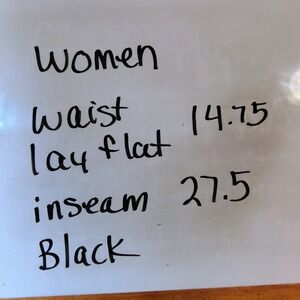 Women
waist
lay flat 14.75
inseam 27.5
Black